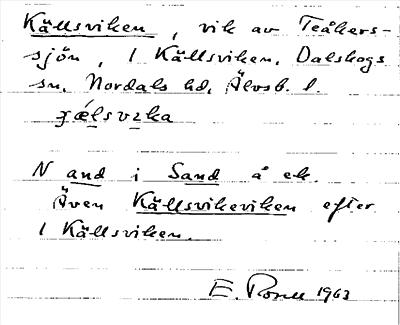 Källsviken, vik av Teåkers-
sjön, 1 Källsviken, Dalskogs
sn, Nordals hd, Älvsb. l.
N and i Sand å ek.
Även Källsvikeviken efter
1 Källsviken.
E. 1963